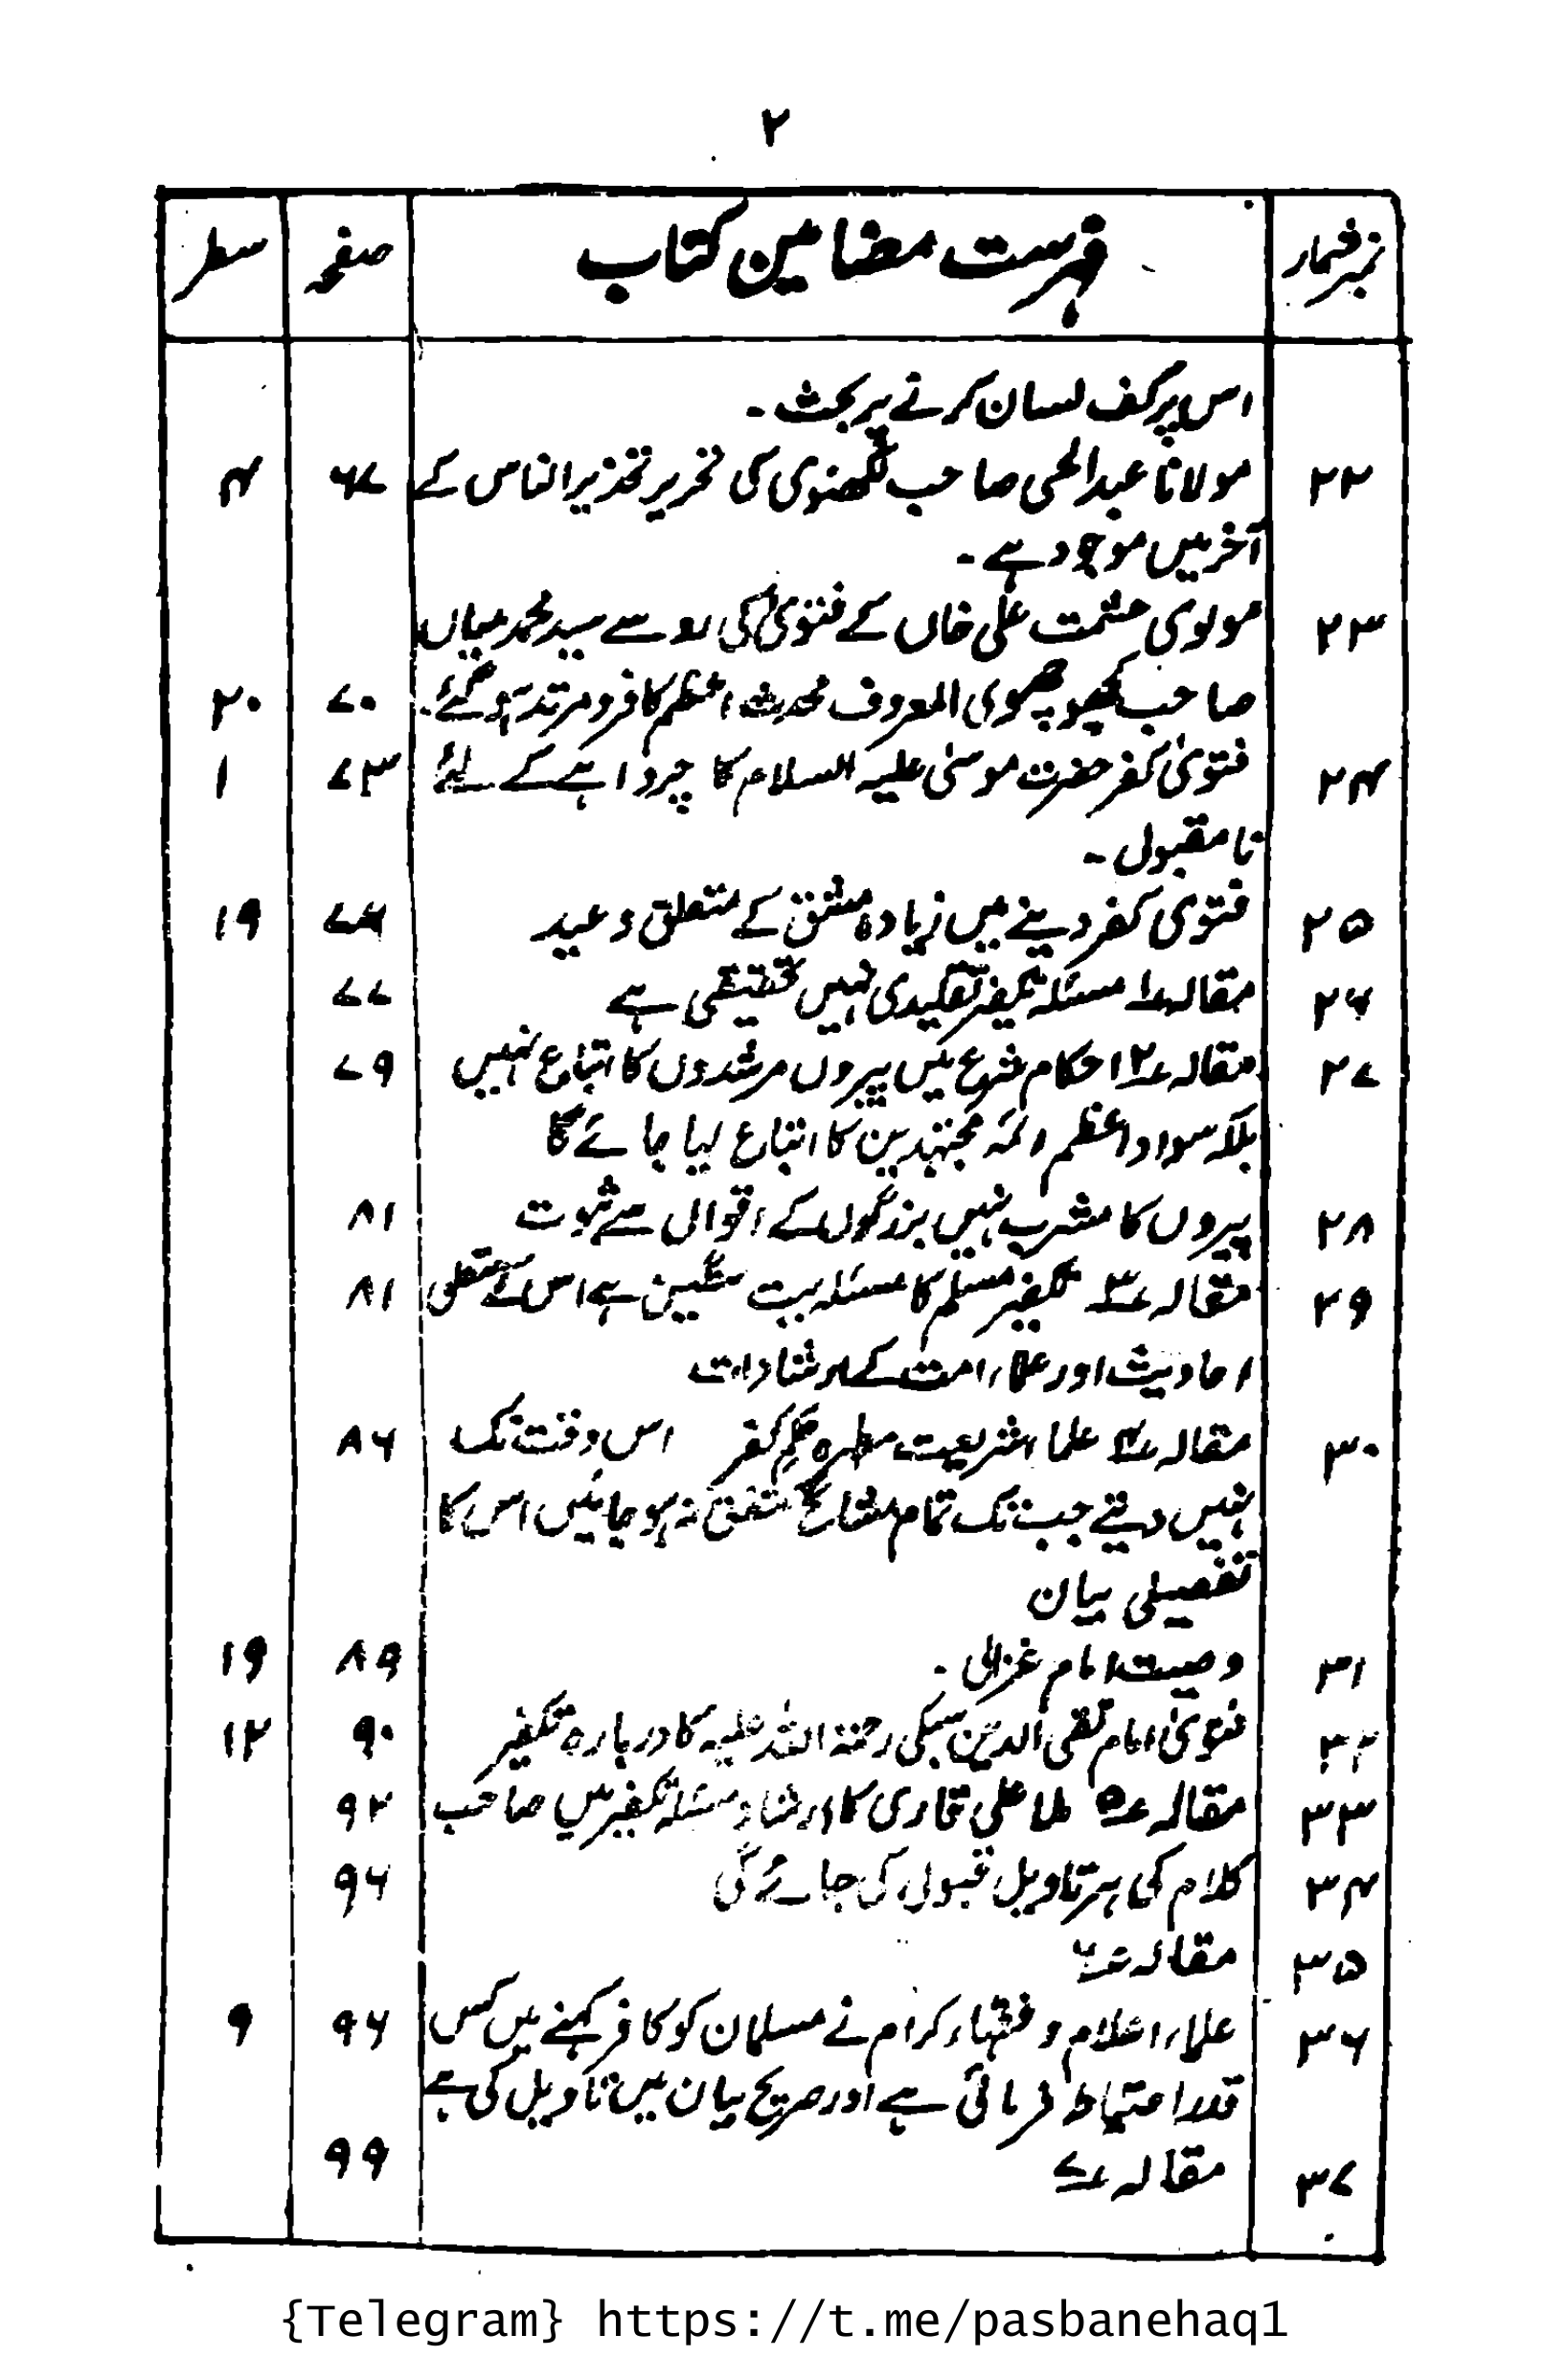 ۲
نمبر شمار فہرست مضامین کتاب صفحہ سطر
اس پر کف لسان کرنے پر بحث ۔
۲۲ مولانا عبدالحی صاحب لکھنوی کی تحریر تحذیر الناس کے ۶۷ ۴
آخر میں موجود ہے ۔
۲۳ مولوی حشمت علی خاں کے فتویٰ کی رو سے سید محمد میاں
صاحب کچھوچھوی المعروف محدث اعظم کافر و مرتد ہو گئے ۔ ۷۰ ۲۰
۲۴ فتویٰ کفر حضرت موسیٰ علیہ السلام کا چرواہے کے لئے ۷۳ ۱
نا مقبول ۔
۲۵ فتویٰ کفر دینے میں زیادہ مشق کے متعلق وعید ۷۴ ۱۹
۲۶ مقالہ ۱ مسئلہ تکفیر تقلیدی نہیں تحقیقی ہے ۷۷
۲۷ مقالہ ۲ احکام شرع میں پیروں مرشدوں کا اتباع نہیں ۷۹
بلکہ سواد اعظم ائمہ مجتہدین کا اتباع کیا جائے گا
۲۸ پیروں کا مشرب نہیں بزرگوں کے اقوال سے ثبوت ۸۱
۲۹ مقالہ ۳ تکفیر مسلم کا مسئلہ بہت سنگین ہے اس کے متعلق ۸۱
احادیث اور علماء امت کے ارشادات
۳۰ مقالہ ۴ علماء شریعت مطہرہ حکم کفر اس وقت تک ۸۶
نہیں دیتے جب تک تمام مشائخ متفق نہ ہو جائیں اس کا
تفصیلی بیان
۳۱ وصیت امام غزالی ۔ ۸۹ ۱۹
۳۲ فتویٰ امام تقی الدین سبکی رحمۃ اللہ علیہ کا دربارہ تکفیر ۹۰ ۱۲
۳۳ مقالہ ۵ ملا علی قاری کا ارشاد مسئلہ تکفیر میں صاحب ۹۲
۳۴ کلام کی ہر تاویل قبول کی جائے گی ۹۶
۳۵ مقالہ ۶
۳۶ علماء اعلام و فقہاء کرام نے مسلمان کو کافر کہنے میں کس ۹۶ ۹
قدر احتیاط فرمائی ہے اور صریح بیان میں تاویل کی ہے
۳۷ مقالہ ۷ ۹۹
{Telegram} https://t.me/pasbanehaq1